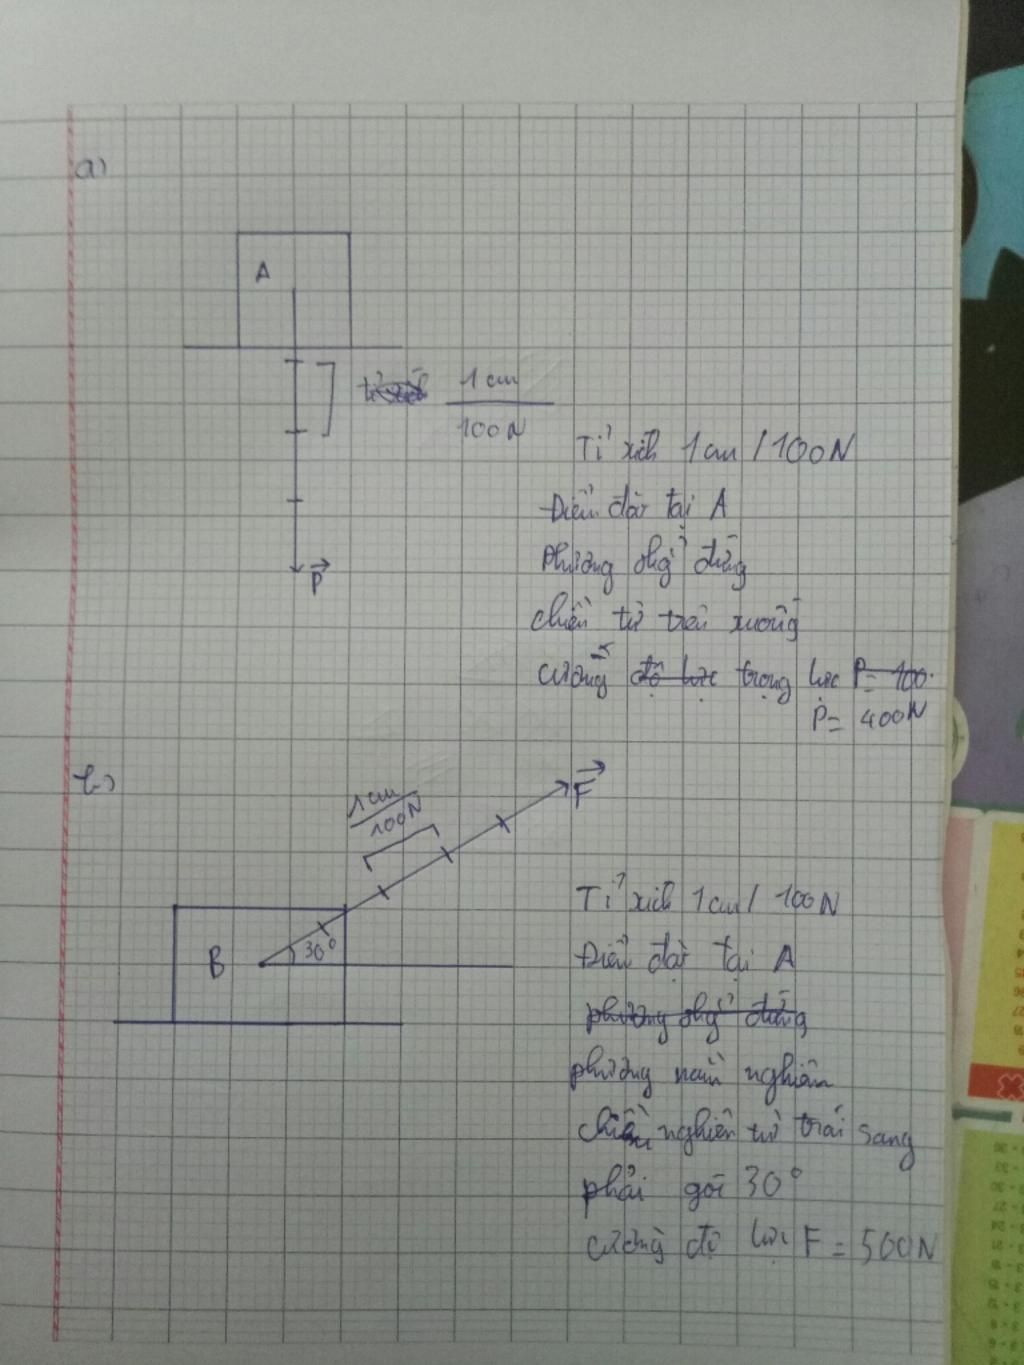 a)
A
1 cm
100 N
P
Tỉ xích 1 cm / 100N
Điểm đặt tại A
Phương thg đứng
chiều từ trên xuống
cường độ lực trọng lực P = 100.
P = 400N
b)
1 cm
100 N
F
B
30°
Tỉ xích 1 cm / 100N
Điểm đặt tại A
phương thg đứng
phương nằm nghiên
chiều nghiên từ trái sang
phải gói 30°
cường độ lực F = 500N